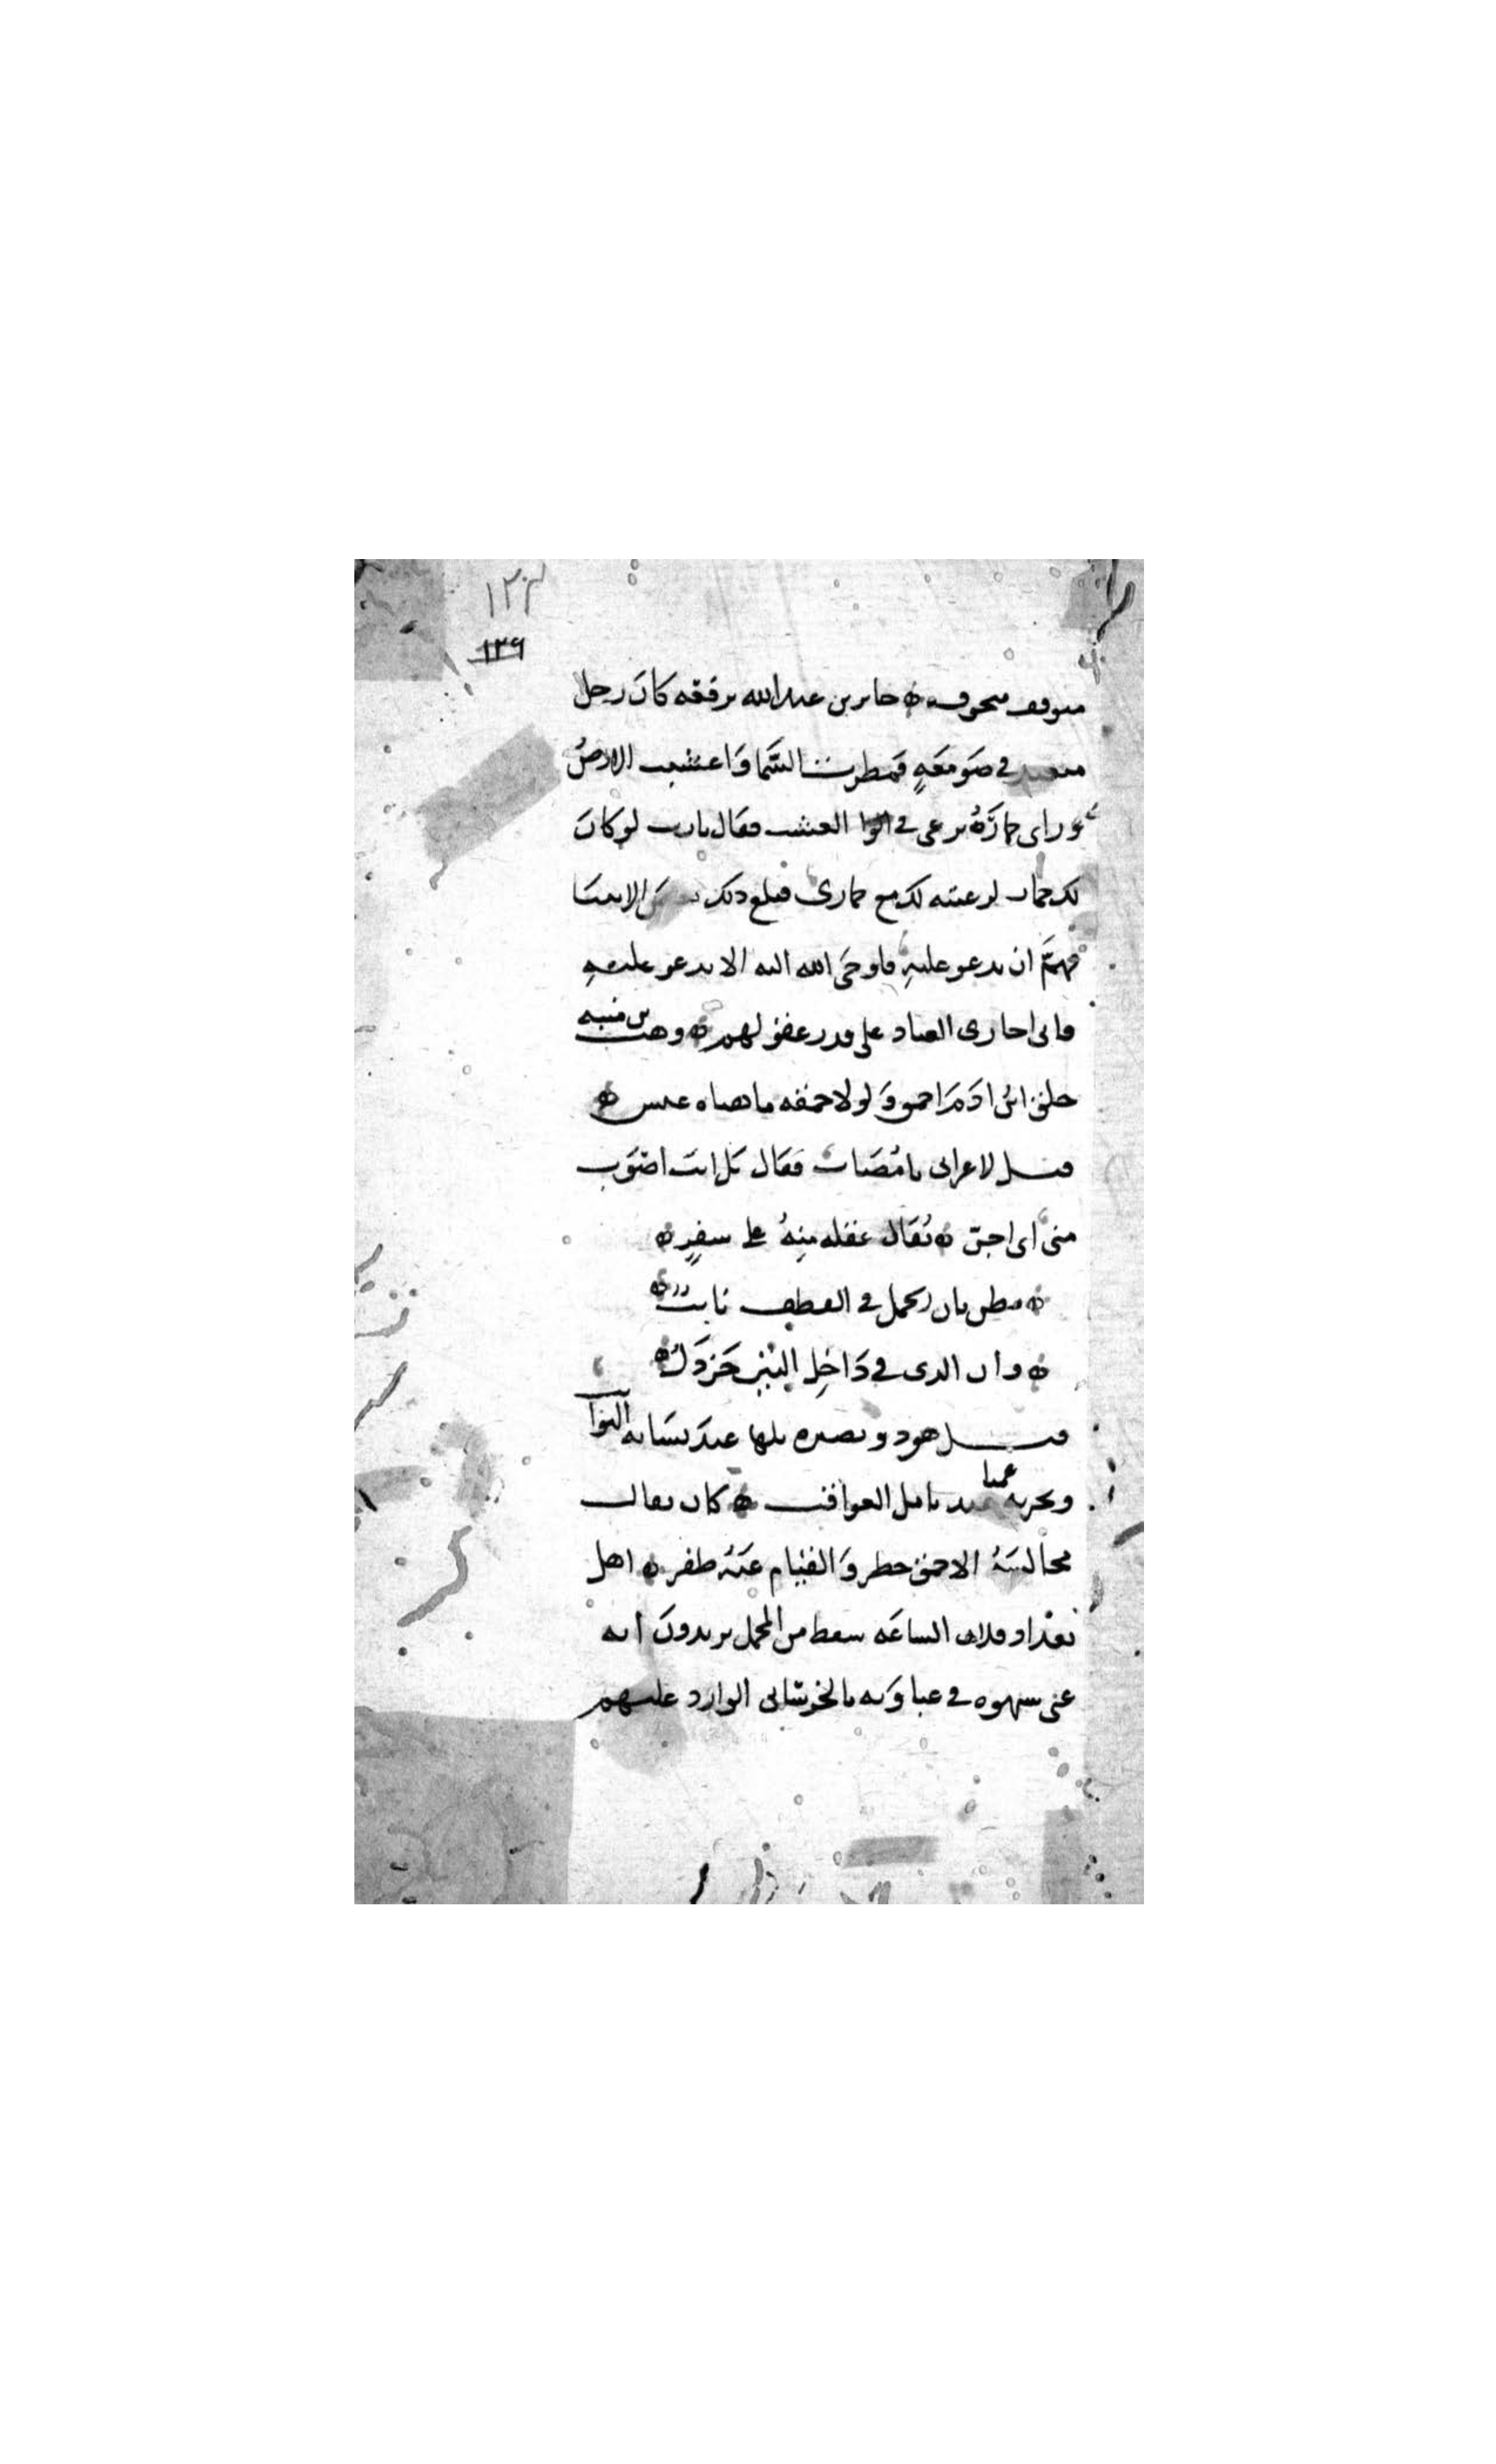 ١٣٤
١٣٦
جابر بن عبدالله يرفعه كان رجل
متعبد في صومعةٍ فمطرت السما واعشبت الارضُ
ورأى حمارَهُ يرعى في العشب فقال يا رب لو كان
لك حمار لرعيته لك مع حماري فبلغ ذلك بعض الانبيا
فهمّ ان يدعو عليهِ فاوحى الله اليه الا يدعو عليهِ
فاني اجازي العباد على قدر عقولهم وهب بن منبه
خلق ابن ادم احمق ولولا حمقه ما هناه عيش
قيل لاعرابي يا مصاب فقال بل انت اصوب
مني اي اجنّ يُقال عقله منهُ على سفرٍ
يظن بان الحمل في القطف ثابت
وان الذي في داخل التين خردل
هود وبصيره بلها عند
وتجربه عميا عند تامل العواقب كان يقال
مجالسَةُ الاحمق خطر والقيام عنهُ ظفر اهل
بغداد فلان الساعه سقط من المحمل يريدون انه
في سهوه في غباوته كالخرساني الوارد عليهم